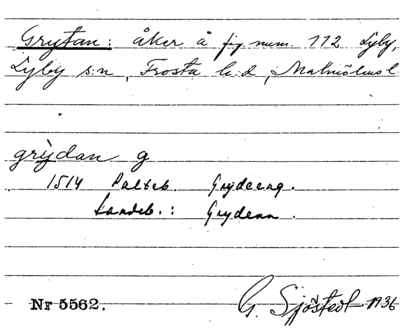 Grytan: åker å fig. num. 112 Lyby,
Lyby s:n, Frosta h:d, Malmöhus l.
grỳdan g
1514 Palteb. Grydeeng.
Landeb.: Grydenn.
Nr 5562. G. Sjöstedt 1936